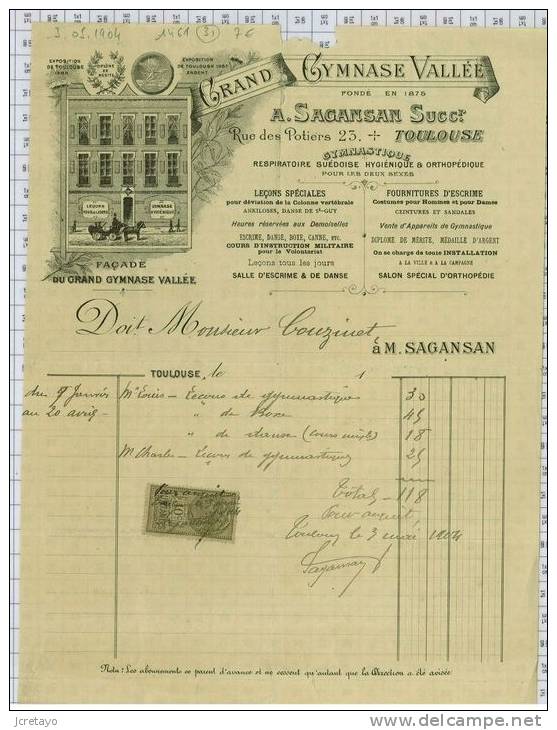 3.05.1904 1461 (31) 7€
EXPOSITION DE TOULOUSE
DIPLOME DE MERITE
EXPOSITION DE TOULOUSE 1887 ARGENT
GRAND GYMNASE VALLÉE
FONDÉ EN 1875
A. SAGANSAN SUCCR
Rue des Potiers 23. TOULOUSE
GYMNASTIQUE
RESPIRATOIRE SUÉDOISE HYGIÉNIQUE & ORTHOPÉDIQUE
POUR LES DEUX SEXES
LEÇONS SPÉCIALES
pour déviation de la Colonne vertébrale
ANKILOSES, DANSE DE St-GUY
Heures réservées aux Demoiselles
ESCRIME, DANSE, BOXE, CANNE, ETC.
COURS D'INSTRUCTION MILITAIRE
pour le Volontariat
Leçons tous les jours
SALLE D'ESCRIME & DE DANSE
FOURNITURES D'ESCRIME
Costumes pour Hommes et pour Dames
CEINTURES ET SANDALES
Vente d'Appareils de Gymnastique
DIPLOME DE MÉRITE, MÉDAILLE D'ARGENT
On se charge de toute INSTALLATION
A LA VILLE & A LA CAMPAGNE
SALON SPÉCIAL D'ORTHOPÉDIE
GYMNASE HYGIÉNIQUE
FAÇADE
DU GRAND GYMNASE VALLÉE
Doit Monsieur Couzinet
à M. SAGANSAN
TOULOUSE, le 1
du 9 Janvier Mr Louis - Leçons de gymnastique 30
au 20 avril - " de Boxe 45
" de danse (cours mixte) 18
Mr Charles - Leçons de gymnastique 25
Total - 118
Pour acquit,
Toulouse le 3 mai 1904
Sagansan
Pour acquit
10
Nota: Les abonnements se paient d'avance et ne cessent qu'autant que la Direction a été avisée
jcretayo
www.delcampe.net